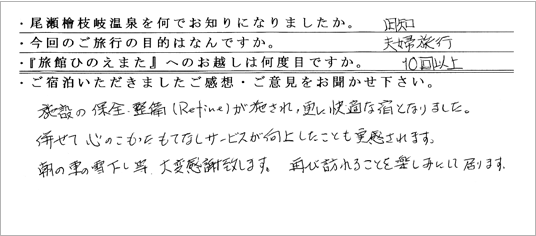 ・尾瀬檜枝岐温泉を何でお知りになりましたか。 旧知
・今回のご旅行の目的はなんですか。 夫婦旅行
・『旅館ひのえまた』へのお越しは何度目ですか。 10回以上
・ご宿泊いただきましたご感想・ご意見をお聞かせ下さい。
施設の保全・整備(Refine)が施され、更に快適な宿となりました。
併せて心のこもったもてなしサービスが向上したことも実感されます。
朝の車の雪下し等、大変感謝致します。 再び訪れることを楽しみにして居ります。